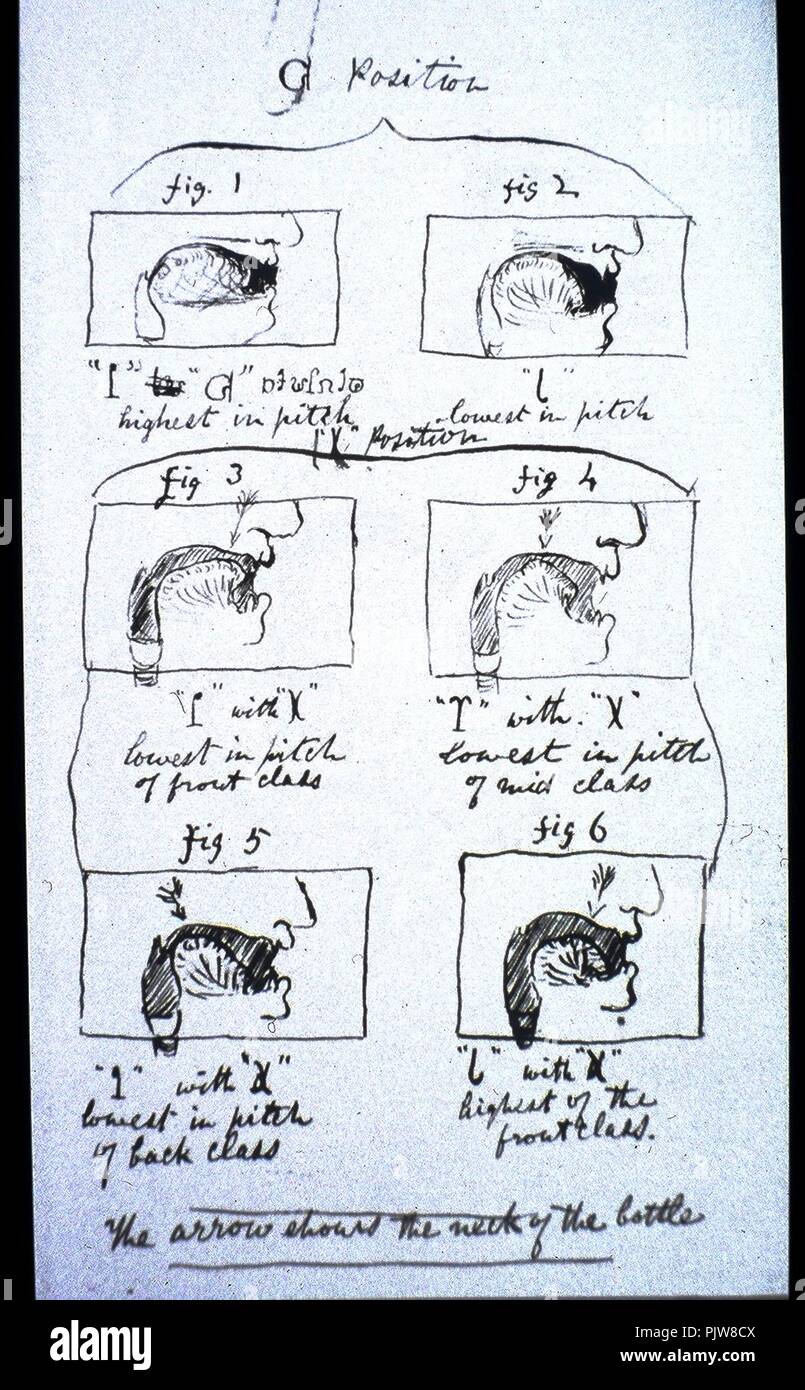 Position
fig. 1
fig 2
highest in pitch
lowest in pitch
"X" Position
fig 3
fig 4
with "X"
lowest in pitch
of front class
with "X"
lowest in pitch
of mid class
fig 5
fig 6
with "X"
lowest in pitch
of back class
with "X"
highest of the
front class.
The arrow shows the neck of the bottle
alamy
Image ID: PJW8CX
www.alamy.com